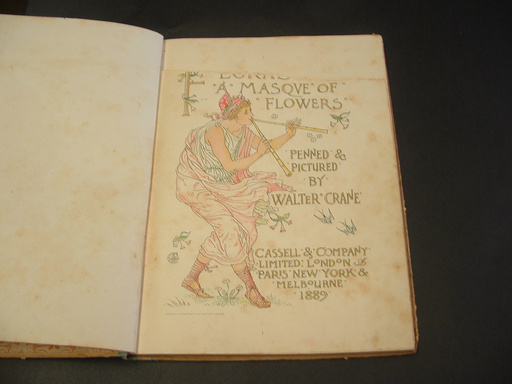 A MASQVE OF
FLOWERS
PENNED &
PICTURED
BY
WALTER CRANE
CASSELL & COMPANY
LIMITED: LONDON
PARIS NEW YORK &
MELBOURNE
1889